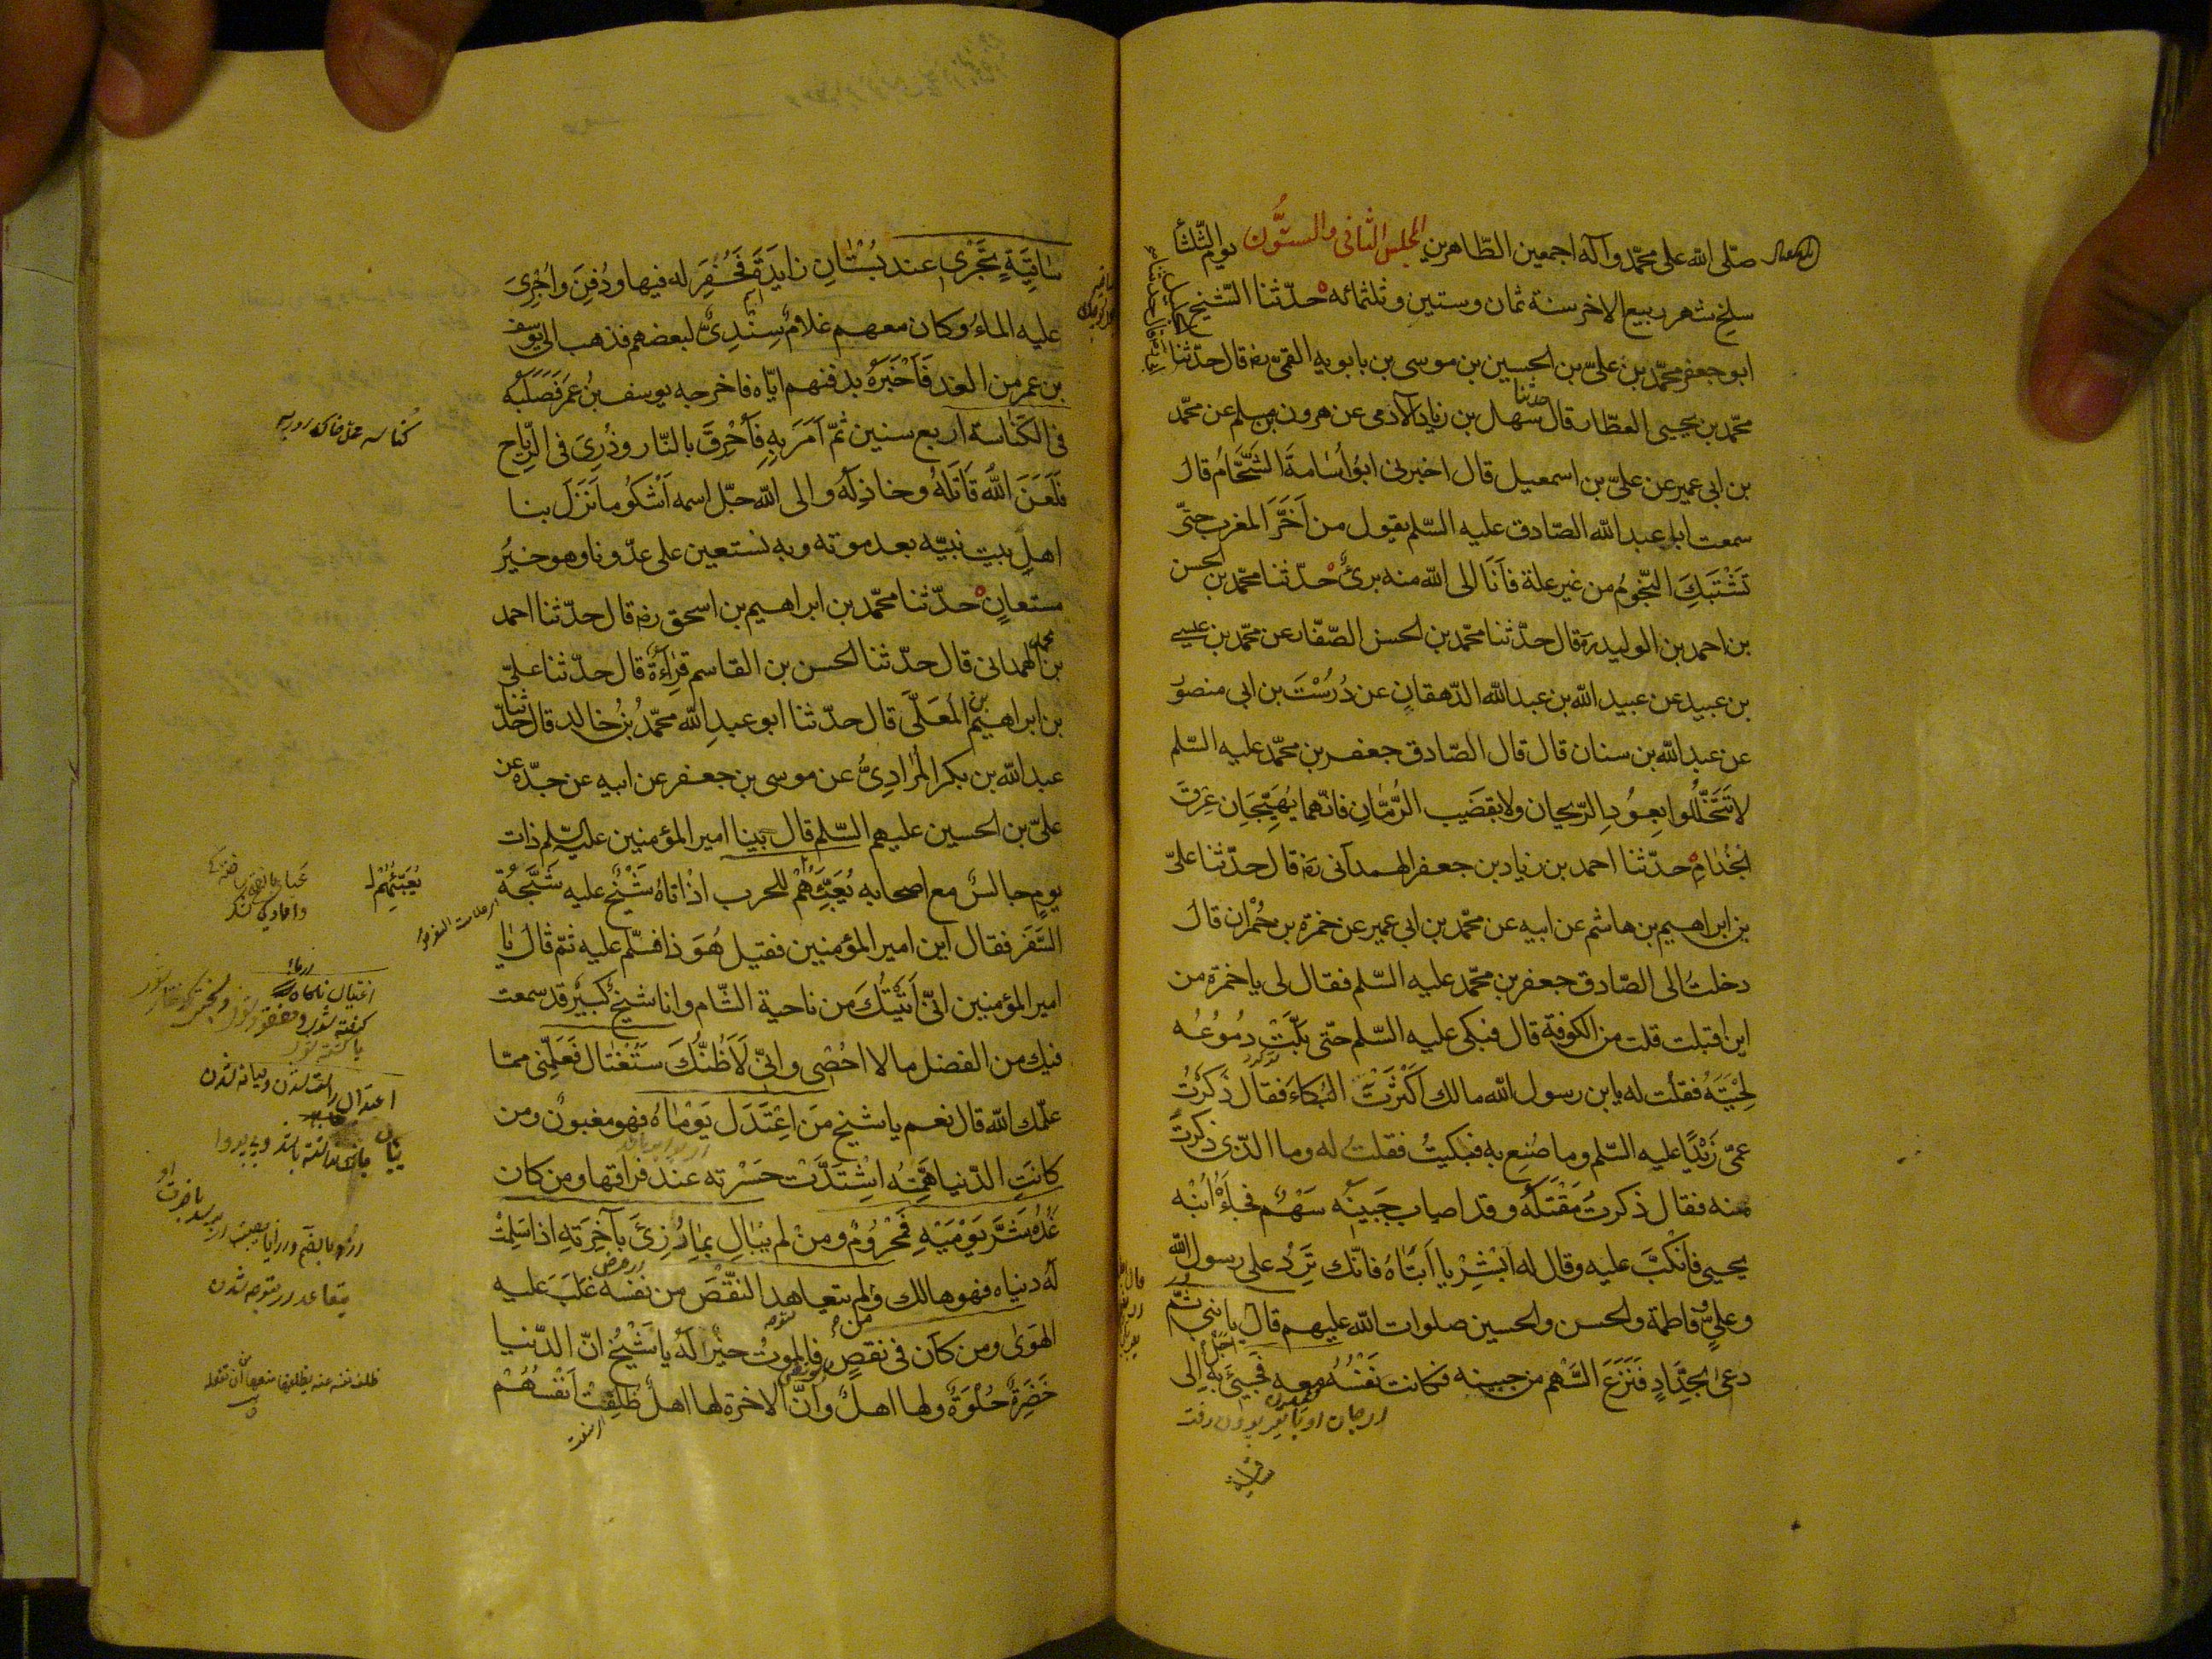 صلّى الله على محمّد وآله اجمعين الطّاهرين المجلس الثانى والستّون يوم الثّلثأ
سلخ شهر ربيع الاخر سنة ثمان وستين وثلثمائه حدّثنا الشّيخ
ابو جعفر محمّد بن علىّ بن الحسين بن موسى بن بابويه القمّى ره قال حدّثنا
محمّد بن يحيى العطّار قال حدثنا سهل بن زياد الادمى عن هرون بن مسلم عن محمّد
بن ابى عمير عن علىّ بن اسمعيل قال اخبرنى ابو اُسامةَ الشّحّام قال
سمعت ابا عبد الله الصّادق عليه السّلم يقول من اَخَّرَ المغرب حتّى
تَشْتَبَكِ النّجُومُ من غير علة فاَنَا الى الله منه برئٌ حدّثنا محمّد بن الحسن
بن احمد بن الوليد ره قال حدّثنا محمّد بن الحسن الصّفّار عن محمّد بن عيسى
بن عبيد عن عبيد الله بن عبد الله الدّهقانِ عن دُرُسْتَ بن ابى منصور
عن عبد الله بن سنان قال قال الصّادق جعفر بن محمّد عليه السّلم
لا تَتَخَلَّلُوا بِعُودِ الرّيحان ولا بقضَيب الرُّمّانِ فانّهما يُهَيِّجانِ عِرْقَ
الجُذامِ حدّثنا احمد بن زياد بن جعفر الهمدانى ره قال حدّثنا علىّ
بن ابراهيم بن هاشم عن ابيه عن محمّد بن ابى عمير عن حمزة بن حُمْران قال
دخلتُ الى الصّادق جعفر بن محمّد عليه السّلم فقال لى يا حمزة من
اين اقبلت قلت من الكوفة قال فبكى عليه السّلم حتّى بَلّتْ دُمُوعُه
لِحْيَتَهُ فقلت له يابن رسول الله مالك اَكْثَرْتَ البُكاءَ فقال ذَكَرْتُ
عمّى زَيْدًا عليه السّلم وما صُنِع به فبكيتُ فقلتُ له وما الذّى ذكرتَ
منه فقال ذكرتُ مَقْتَلَهُ وقد اصاب جَبينَه سَهْمٌ فجاءَهُ ابْنُه
يحيى فانْكَبَّ عليه وقال له اَبْشِرْ يا اَبَتاهُ فانّك تَرِدُ على رسول الله
وعلىٍّ وفاطمة والحسن والحسين صلوات الله عليهم قال اجل يا بنى ثُمَّ
دعى الحِدّادِ فَنَزَعَ السَّهْم من جبينه فكانت نَفْسُهُ معه فَجيئَ به الى
ساقية
ساقِيَةٍ تَجْرى عند بُسْتانِ زايدَةَ فَحُفِرَ له فيها ودُفِنَ واُجْرِىَ
عليه الماءُ وكان معهم غلامٌ سِنْدِىٌّ لبعضهم فذهب الى يوسف
بن عمر من الغد فَاَخْبَرَهُ بدفنهم ايّاه فاخرجه يوسف بنُ عُمَرَ فَصَلَبَهُ
فى الكُناسة اربع سنين ثمّ اَمَرَ بِه فاُحْرِقَ بالنّار وذُرِىَ فى الرّياح
فلَعَنَ اللهُ قاتلَهُ وخاذِلَهُ والى الله جلّ اسمه اَشْكُو ما نَزَلَ بنا
اهلِ بيت نبيّه بعد موته وبه نستعين على عدّونا وهو خيرُ
مستعانٍ حدّثنا محمّد بن ابراهيم بن اسحق ره قال حدّثنا احمد
بن محمد الهمدانى قال حدّثنا الحسن بن القاسم قراءةً قال حدّثنا علىّ
بن ابراهيم بن المُعَلّى قال حدّثنا ابو عبدِ الله محمّدُ بنُ خالد قال حدّثنا
عبد الله بن بكر المُرادِىُّ عن موسى بن جعفر عن ابيه عن جدّه عن
علىّ بن الحسين عليهم السّلم قال بينا امير المؤمنين عليه السّلم ذات
يومٍ جالسٌ مع اصحابه يُعَبِّئُهُمْ للحرب اذْ اتاهُ شَيْخٌ عليه شَحْبَةُ
السَّفَر فقال اين امير المؤمنين فقيل هُوَ ذا فسلّم عليه ثمّ قال يا
امير المؤمنين انّى اَتَيْتُكَ من ناحية الشّام وانا شيخٌ كبيرٌ قد سمعت
فيك من الفضل ما لا اُحْصى وانّى لَاَظُنُّكَ سَتُغْتال فَعَلِّمْنى ممّا
علّمك الله قال نعم يا شيخ مَنِ اعْتَدَل يَوْماهُ فهو مغبونٌ ومن
كانَتِ الدّنيا هَمَّتَهُ اشْتَدَّتْ حَسْرته عند فراقها ومن كان
غَدُهُ شَرَّ يَوْمَيْهِ فَمَحْرُومٌ ومنْ لم يُبالِ بما رُزِئَ بآخِرَتِهِ اذا سَلِمَتْ
لَهُ دنياه فهو هالك ومن لم يتعاهدِ النّقْصَ من نفسه غَلَبَ عَليه
الهَوى ومن كان فى نقصٍ فالموتُ خيْرٌ لَهُ يا شَيْخُ انّ الدّنيا
خَضِرَةٌ حُلْوَةٌ ولها اهلٌ وانَّ الاخرة لها اهلٌ ظَلِفَتْ اَنْفُسُهُمْ
يُعَبِّئُهُمْ